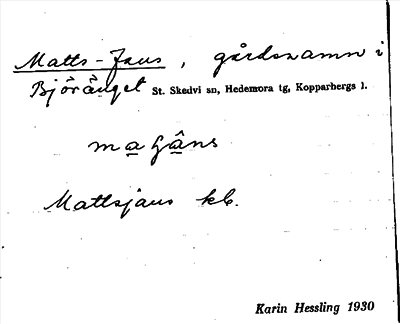 Matts-Jans, gårdsnamn i
Björänget St. Skedvi sn, Hedemora tg, Kopparbergs l.
Mattsjans kb.
Karin Hessling 1930